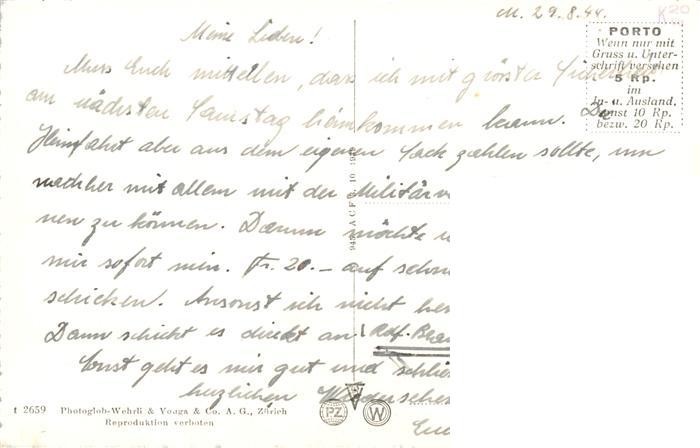 M. 29.8.44.
K20
Meine Lieben!
PORTO
Wenn nur mit
Gruss u. Unter-
schrift versehen
5 Rp.
im
In- u. Ausland.
Sonst 10 Rp.
bezw. 20 Rp.
Muss Euch mitteilen, dass ich mit grösster Sicherheit
am nächsten Samstag heimkommen kann. Die
Heimfahrt aber aus dem eigenen Sack zahlen sollte, um
nachher mit allem mit der Militärv
nen zu können. Darum möchte
mir sofort min. Fr. 20.– auf
schicken. Ansonst ich nicht
Dann schickt es direkt an
Sonst geht es mir gut und schlies
herzlichen Wiedersehen
Eue
t 2659 Photoglob-Wehrli & Vouga & Co. A. G., Zürich
Reproduktion verboten
PZ
W